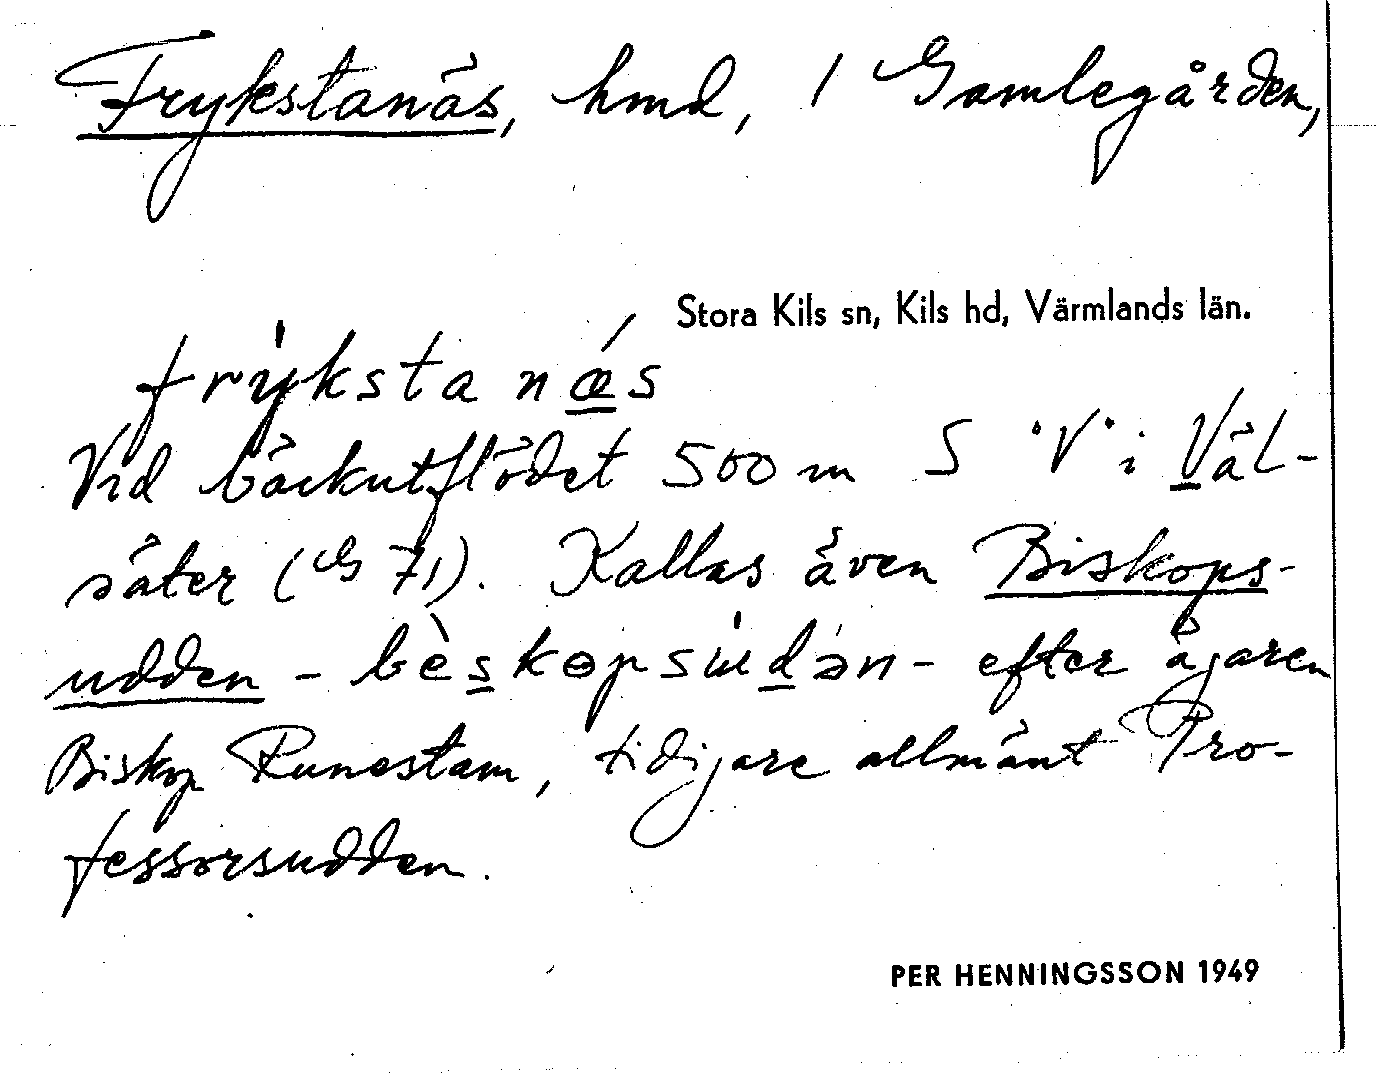 Frykstanäs, hmd, 1 Gamlegården,
Stora Kils sn, Kils hd, Värmlands län.
frykstanæs
Vid bäckutflödet 500 m S "V" i Väl-
säter (G 71). Kallas även Biskops-
udden - bèskɵpsudən - efter ägaren
Biskop Runestam, tidigare allmänt Pro-
fessorsudden.
PER HENNINGSSON 1949